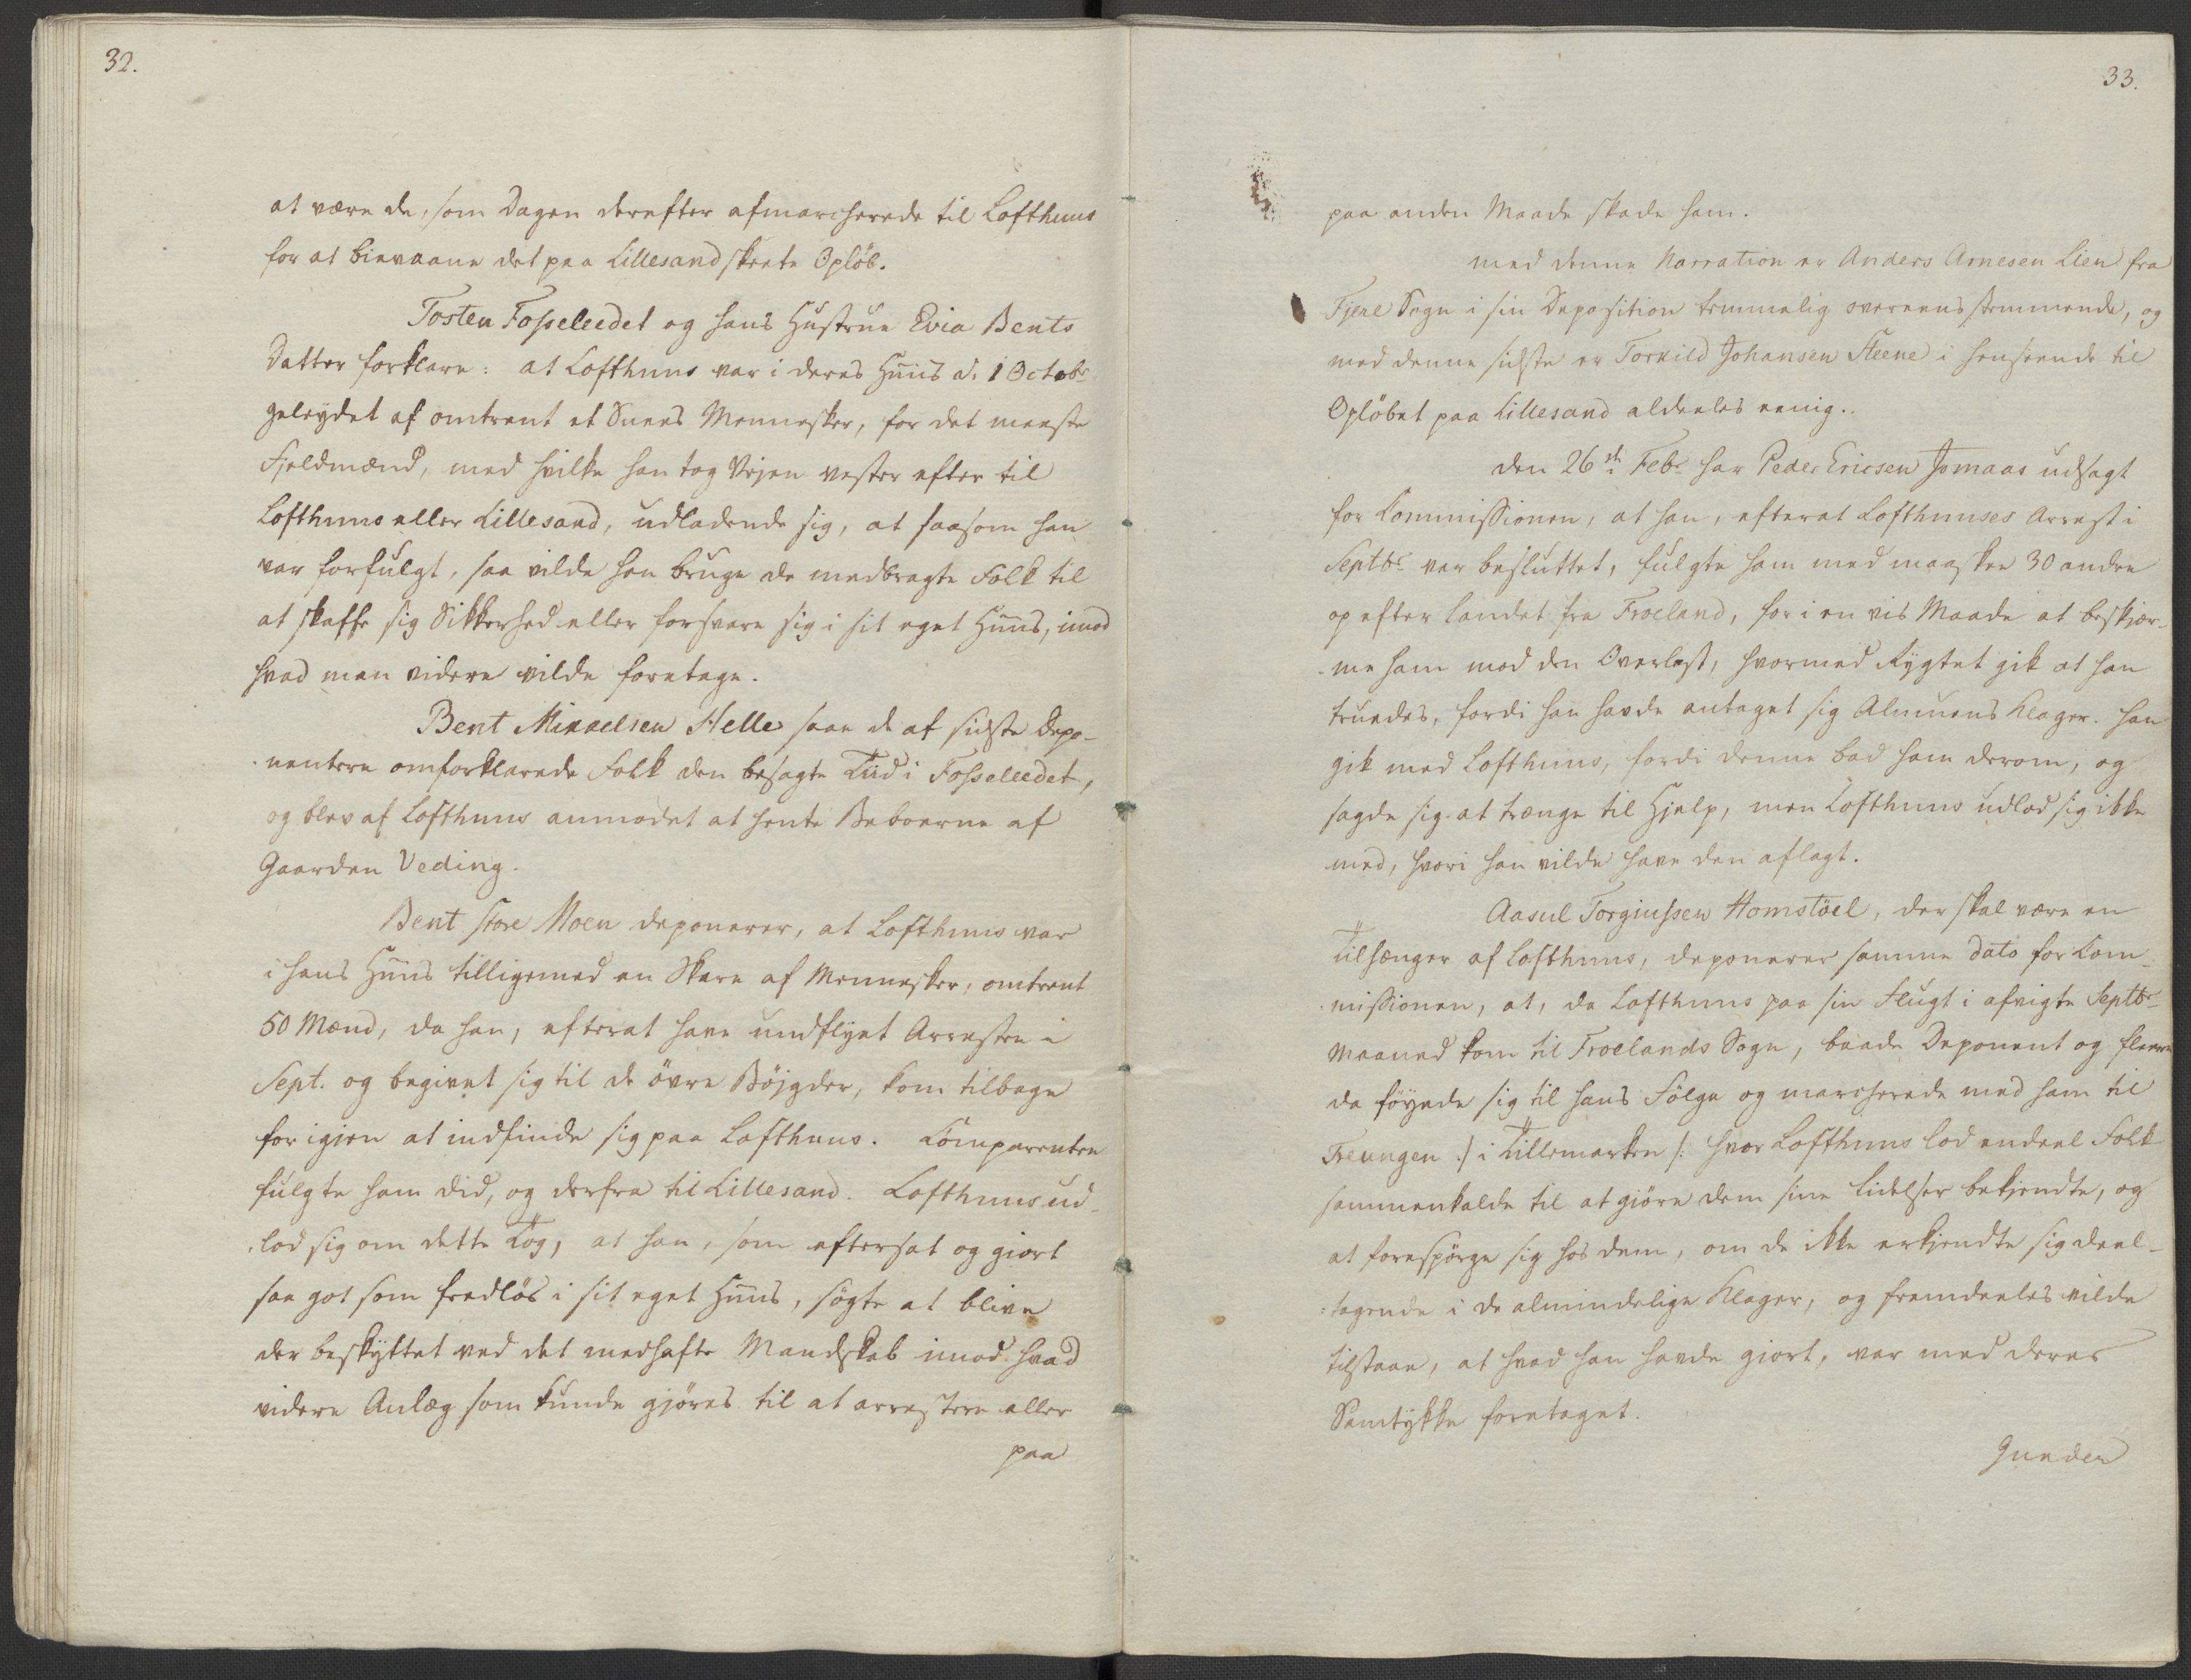 32.
at være de, som Dagen derefter afmarcherede til Lofthuus
for at bievaane det paa Lillesand skeete Opløb.
Tosten Fosseleedet og hans Hustrue Evia Bents
Datter forklare: at Lofthuus var i deres Huus d. 1 Octobr
geleydet af omtrent et Snees Mennesker, for det meeste
Fjeldmænd, med hvilke han tog Vejen vester efter til
Lofthuus eller Lillesand, udladende sig, at saasom han
var forfulgt, saa vilde han bruge de medbragte Folk til
at skaffe sig Sikkerhed eller forsvare sig i sit eget Huus, imod
hvad man videre vilde foretage.
Bent Mikaelsen Helle saae de af sidste Depo-
nentere omforklarede Folk den besagte Tiid i Fosseleedet,
og blev af Lofthuus anmodet at hente Beboerne af
Gaarden Veding.
Bent store Moen deponerer, at Lofthuus var
i hans Huus tilligemed en Skare af Mennesker, omtrent
50 Mænd, da han, efterat have undflyet Arresten i
Sept. og begivet sig til de övre Böjgder, kom tilbage
for igien at indfinde sig paa Lofthuus. Comparenten
fulgte ham did, og derfra til Lillesand. Lofthuus ud-
lod sig om dette Tog, at han, som eftersat og giort
saa got som fredlös i sit eget Huus, sögte at blive
der beskyttet ved det medhafte Mandskab imod hvad
videre Anlæg som kunde gjöres til at arrestere eller
paa
33.
paa anden Maade skade ham.
med denne Narration er Anders Arnesen Lien fra
Fjere Sogn i sin Deposition temmelig overeensstemmende, og
med denne sidste er Torkild Johansen Steene i henseende til
Oplöbet paa Lillesand aldeeles eenig.
den 26de Febr. har Peder Ericsen Jomaas udsagt
for Commissionen, at han, efterat Lofthuuses Arrest i
Septbr var besluttet, fulgte ham med maaskee 30 andre
op efter landet fra Froeland, for i en vis Maade at beskjær-
me ham mod den Overlast, hvormed Rygtet gik at han
truedes, fordi han havde antaget sig Almuens Klager. han
gik med Lofthuus, fordi denne bad ham derom, og
sagde sig at trænge til Hjelp, men Lofthuus udlod sig ikke
med, hvori han vilde have den aflagt.
Aasul Torgiussen Homstöel, der skal være en
Tilhænger af Lofthuus, deponerer samme dato for Com-
missionen, at, da Lofthuus paa sin Flugt i afvigte Septbr
Maaned kom til Froelands Sogn, baade Deponent og fleere
da föyede sig til hans Fölge og marcherede med ham til
Treungen /: i Tillemarken :/ hvor Lofthuus lod endeel Folk
sammenkalde til at giöre dem sine Lidelser bekjendte, og
at forespörge sig hos dem, om de ikke erkjendte sig deel-
tagende i de almindelige Klager, og fremdeeles vilde
tilstaae, at hvad han havde giort, var med deres
Samtykke foretaget.
Gunder